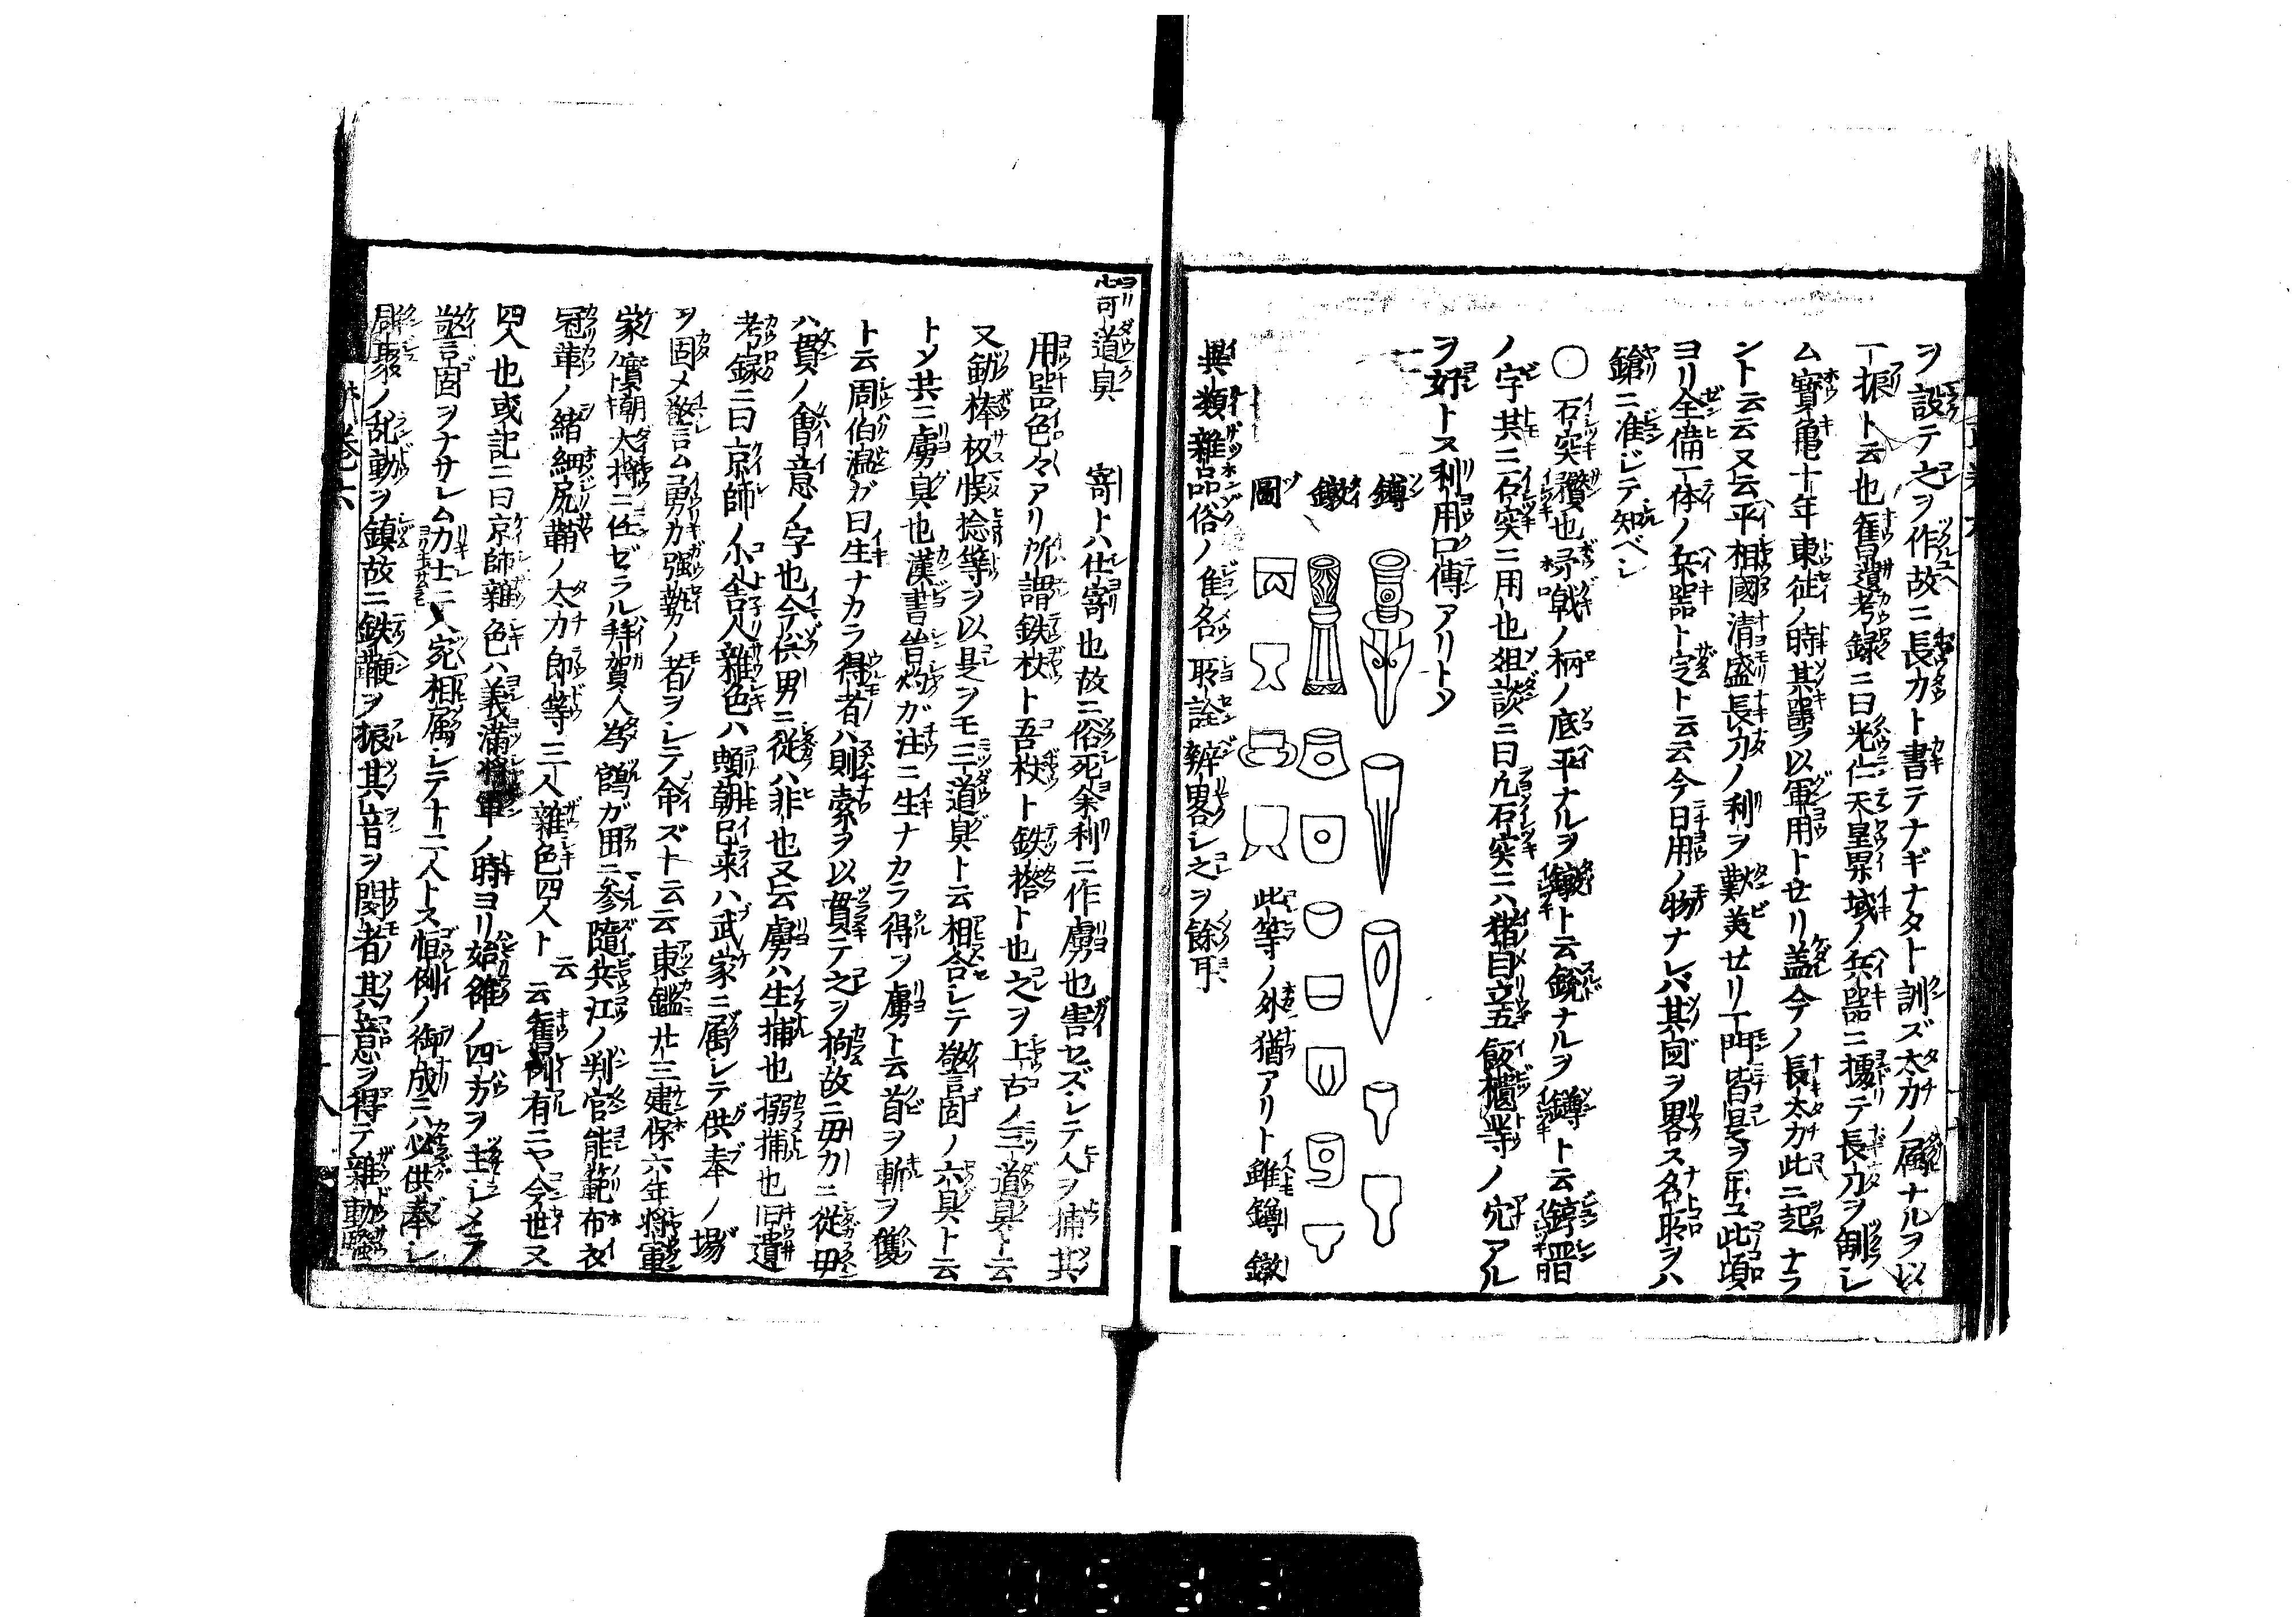 ヲ設テ之ヲ作故ニ長刀ト書テナギナタト訓ズ太刀ノ属ナルヲ以
一振ト云也舊遺考録ニ曰光仁天皇異域ノ兵器ニ擾テ長刀ヲ制シ
ム寳亀十年東征ノ時其器ヲ以軍用トせリ盖今ノ長太刀此ニ起ナラ
ント云云又云平相國清盛長刀ノ利ヲ歎美せリ一門皆是ヲ用ユ此頃
ヨリ全備一体ノ兵器ト定ト云云今日用ノ物ナレバ其図ヲ畧ス名所ヲハ
鎗ニ准ジテ知ベシ
〇石突欑也矛戟ノ柄ノ底平ナルヲ鐓ト云鋭ナルヲ鐏ト云錞䤿
ノ字共ニ石突ニ用也俎談ニ曰凡石突ニハ猪目立五飯樻等ノ穴アル
ヲ好トス利用口傳アリトソ
鐏
鐓
圖
此等ノ外猶アリト雖鐏鐓
異類雜品俗ノ隹名所詮辨畧シ之ヲ餘可
寄道具　寄ト八仕寄也故ニ俗死余利ニ作虜也害セズシテ人ヲ捕其
用器色々アリ所謂鉄杖ト吾杖ト鉄搭ト也之ヲ上古ノ三道具ト云
又鉞棒杈悞捻等ヲ以是ヲモ三道具ト云相合シテ警固ノ六具ト云
トソ共ニ虜具也漢書晋灼ガ注ニ生ナカラ得ヲ虜ト云首ヲ斬ヲ獲
ト云周伯温ガ曰生ナカラ得者ハ則索ヲ以貫テ之ヲ拘故ニ毋力ニ從毋
ハ貫ノ會意ノ字也今俗男ニ從ハ非也又云虜ハ生捕也搦捕也旧遺
考録ニ曰京師ノ小舎人雜色ハ頼朝已来ハ武家ニ属シテ供奉ノ場
ヲ固メ警言ム勇力强勢ノ者ヲシテ命ズト云云東鑑廿三建保六年将軍
家實朝大将ニ任ゼラル拜賀人為鶴が岡ニ参隨兵江ノ判官能範布衣
冠葦ノ緒細尻鞘ノ太刀郎等三人雜色四人ト云云舊例有ニヤ今世又
四人也或記ニ曰京師雜色ハ義滿将軍ノ時ヨリ始雑ノ四方ヲ主シメテ
警固ヲナサレム力士二人宛相属シテ十二人トス恒例ノ御成ニハ必供奉シ
群聚ノ乱動ヲ鎮故ニ鉄鞭ヲ振其音ヲ聞者其意ヲ得テ雜動騒
巻六
十八